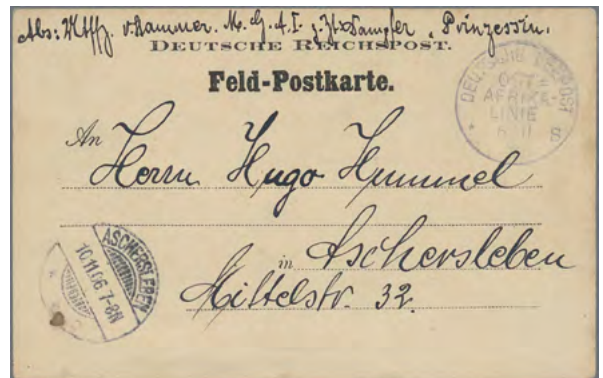 Abs: v. Hammer. M. G. A. I. "Prinzessin.
DEUTSCHE REICHSPOST.
Feld-Postkarte.
DEUTSCHE SEEPOST
OST-
AFRIKA-
LINIE
An
Herrn Hugo Hummel
in Aschersleben
Mittelstr. 32.
ASCHERSLEBEN
10.11.06 7-8N